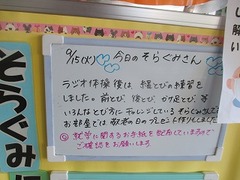 9/15(火) 今日のそらぐみさん
ラジオ体操後は、縄とびの練習を
しました。前とび、後とび、かけ足とび、等
いろんなとび方にチャレンジしているそらぐみさんです。
お部屋では敬老の日のプレゼント作りをしました。
就学に関するお手紙を配布していますので
ご確認をお願いします
そらぐみ